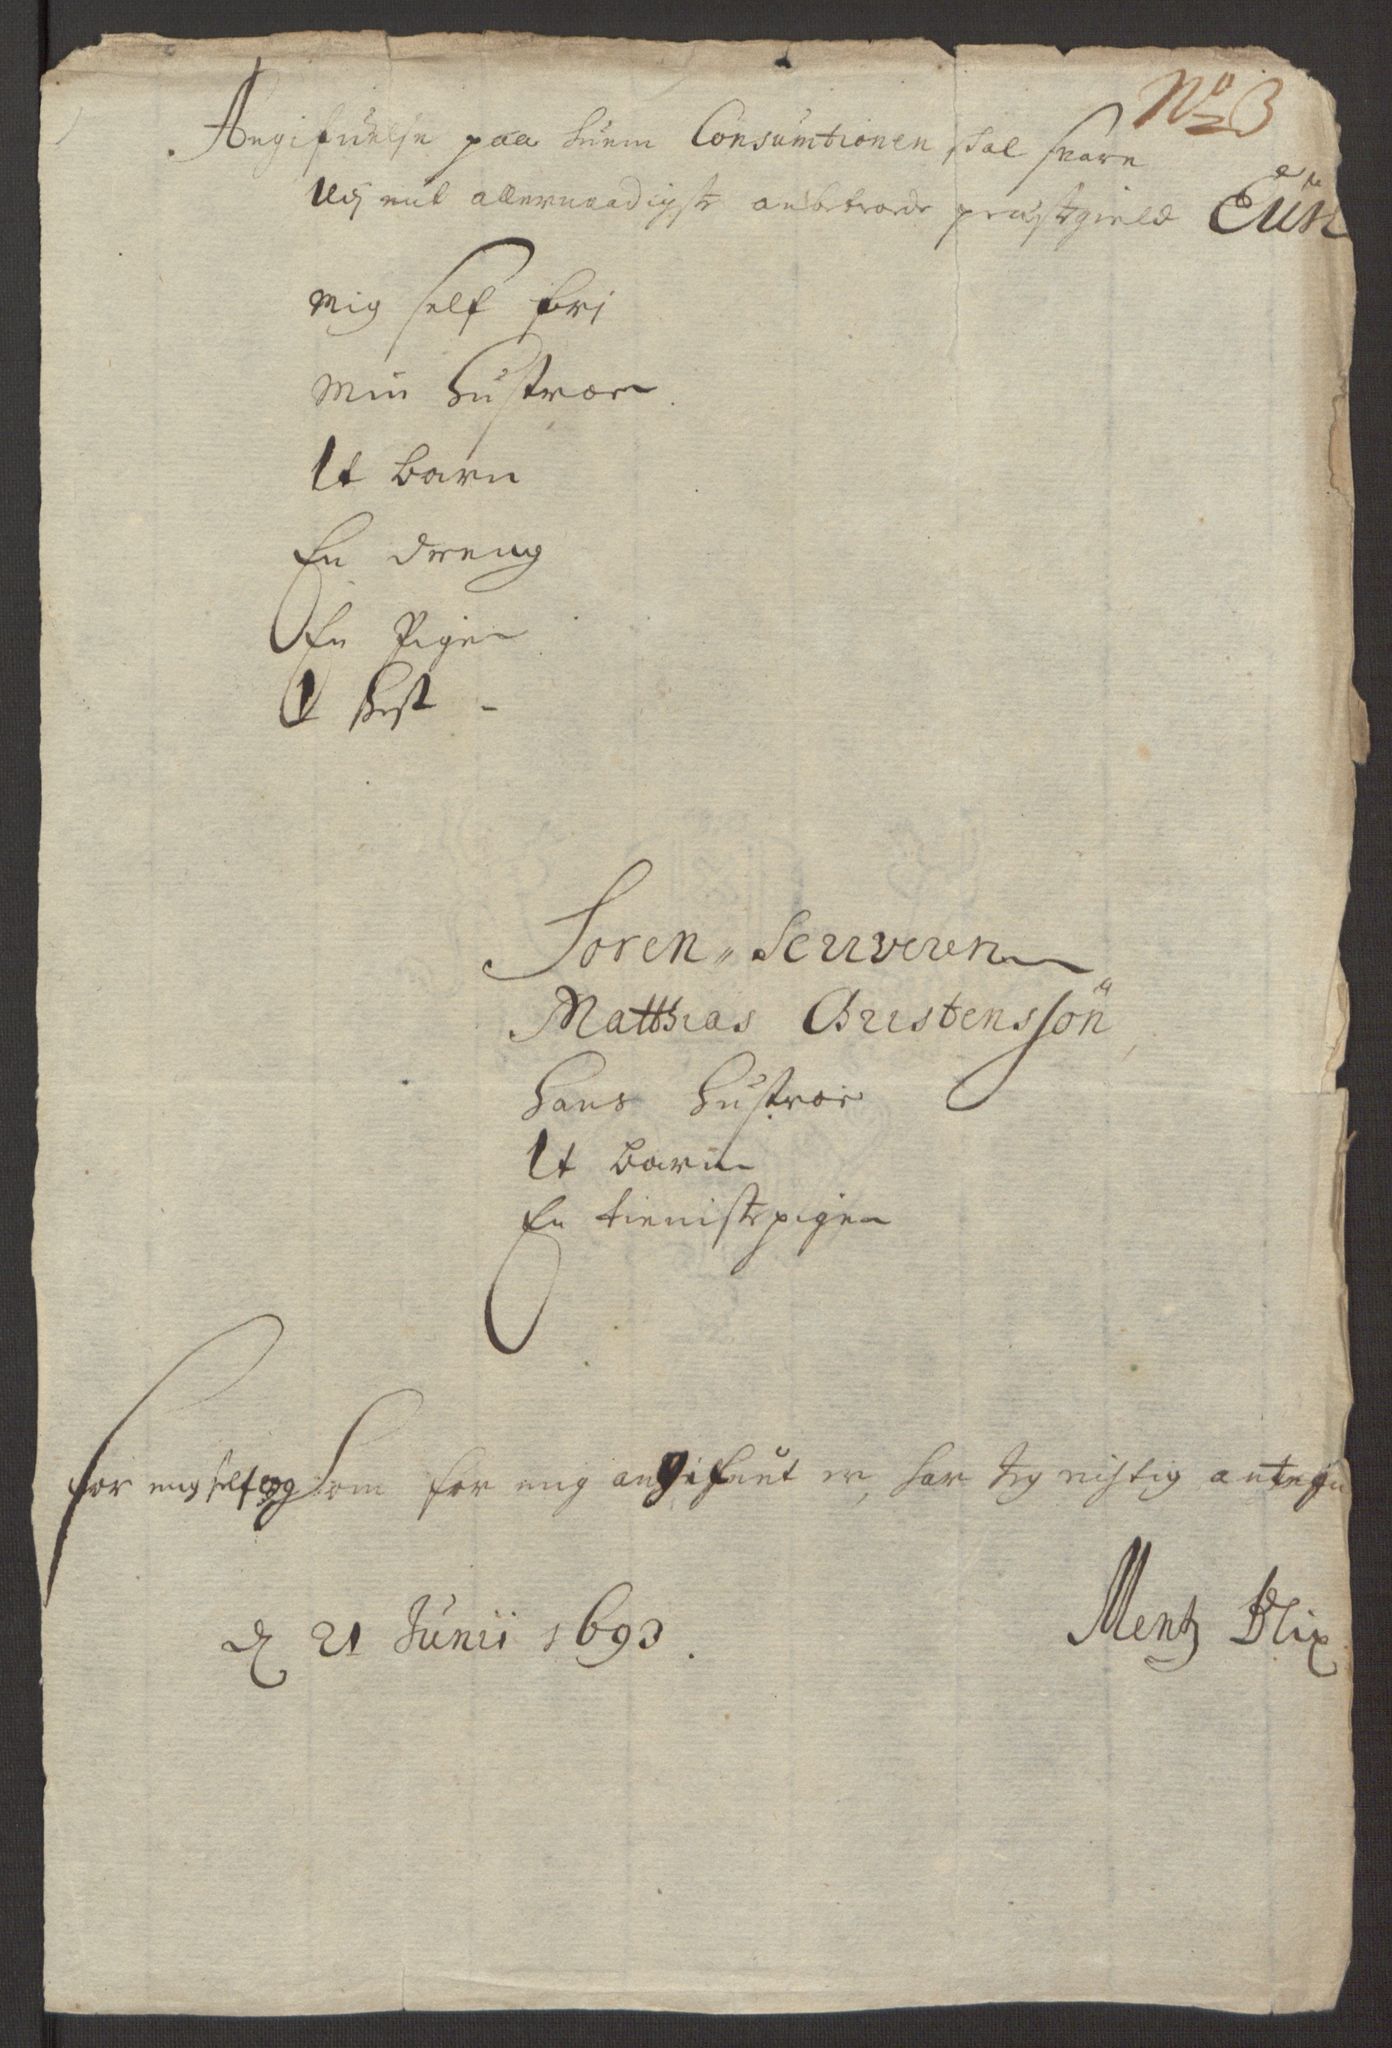 No 3
Angifuelse paa huem Consumtionen skal suare
Udj mit allernaadigste anbetroede prestegield
mig self fri
min hustroe
1t barn
En dreng
En Pige
1 Hest -
Soren
Matthias Christenssön
hans hustroe
1t barn
En tienistepige
For mig self og som for mig angifuet er, har Jeg rigtig
d 21 Junii 1693.
Mentz Blix